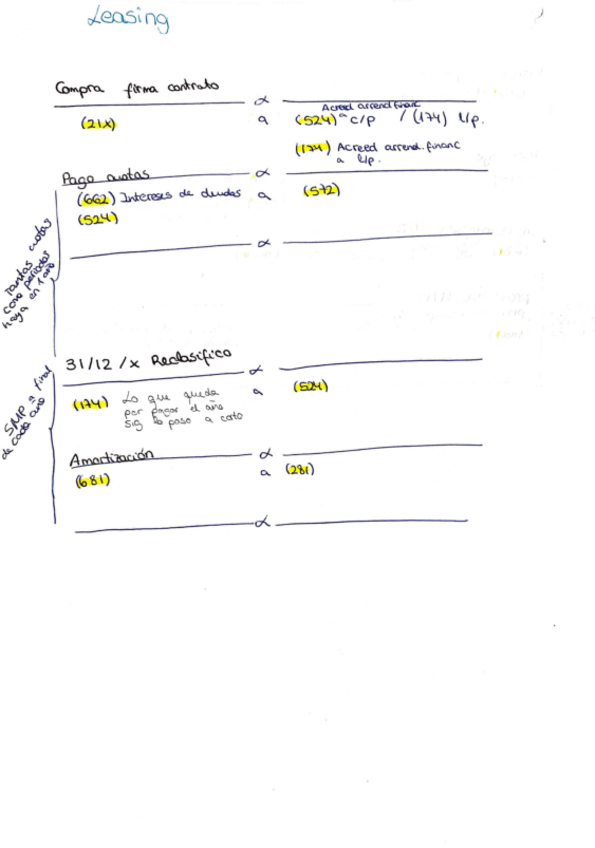 Leasing
Compra firma contrato
Acreed arrend financ
(21x) a (524) a c/p / (174) l/p.
(174) Acreed arrend. financ
a l/p.
Pago cuotas
(662) Intereses de deudas a (572)
(524)
Tantas cuotas
como periodos
haya en 1 año
31/12/x Reclasifico
(174) Lo que queda a (524)
por pagar el año
sig lo paso a corto
SMP a final
de cada año
Amortización
(681) a (281)